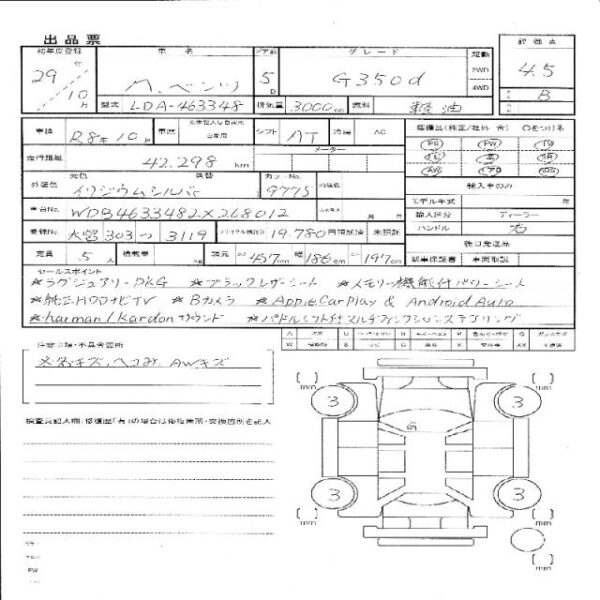 出品票
初年度登録 車名 ドア数 グレード 駆動 評価点
29年 10月 M.ベンツ 5D G350d 2WD 4WD 4.5
B
型式 LDA-463348 排気量 3000cc 燃料 軽油
車検 R8年10月 車歴 自家用 シフト AT 冷房 AC
装備品(純正/社外含) ○をつける
走行距離 42,298 km メーター
PS PW
AW
輸入車のみ
外装色 元色 イリジウムシルバー 色替 カラーNo. 9775 内装色
モデル年式 年
車台No. WDB4633482X268012
輸入区分 ディーラー
登録No. 大宮 303 つ 3119 リサイクル預託金 19,780円 預託済 未預託
ハンドル 右
後日発送品
定員 5人 積載量 kg 諸元 長さ 457 幅 186 cm 高さ 197
新車保証書 車両取説
セールスポイント
★ラグジュアリーPKG ★ブラックレザーシート ★メモリー機能付パワーシート
★純正HDDナビTV ★Bカメラ ★Apple CarPlay & Android Auto
★harman/Kardonサウンド ★パドルシフト付マルチファンクションステアリング
注意事項・不具合箇所
内外キズ、ヘコみ、AWキズ
検査員記入欄:修復歴「有」の場合は修復箇所・交換箇所を記入
mm mm
3 3
G
3 3
mm mm